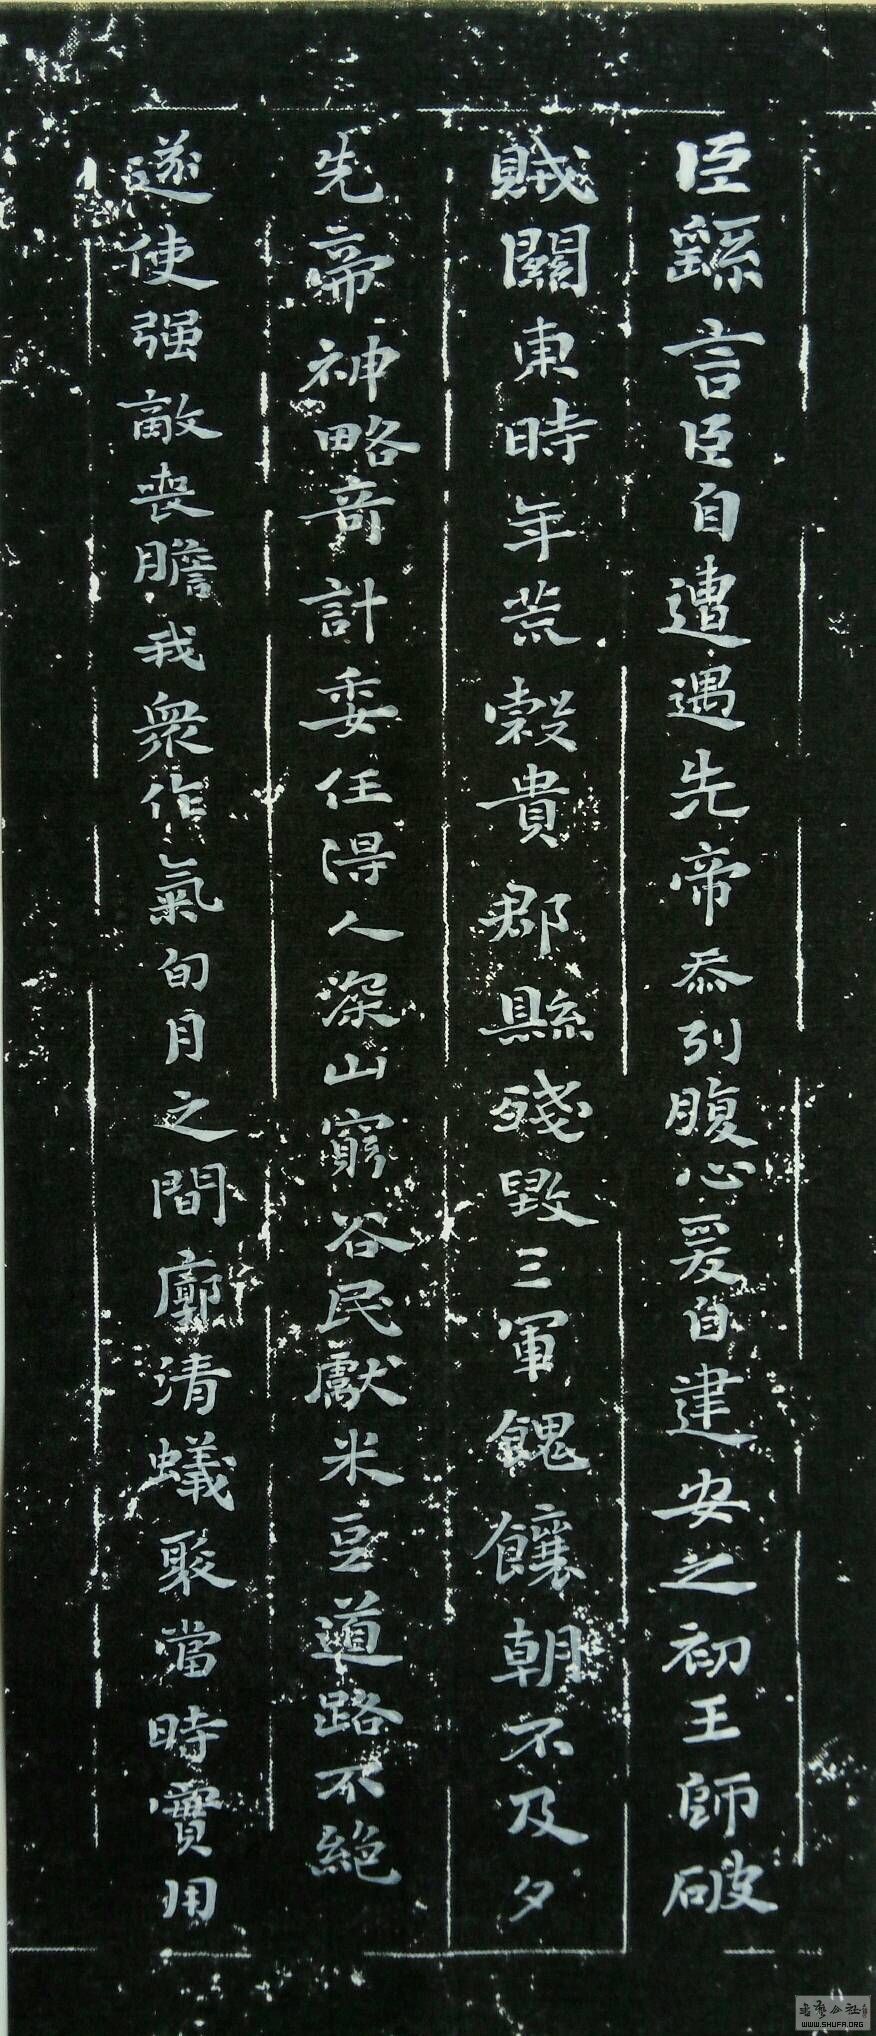 臣繇言臣自遭遇先帝忝列腹心爰自建安之初王師破
賊關東時年荒榖貴郡縣殘毀三軍餽饟朝不及夕
先帝神略奇計委任得人深山窮谷民獻米豆道路不絶
遂使强敵喪膽我衆作氣旬月之間廓清蟻聚當時實用
WWW.SHUFA.ORG